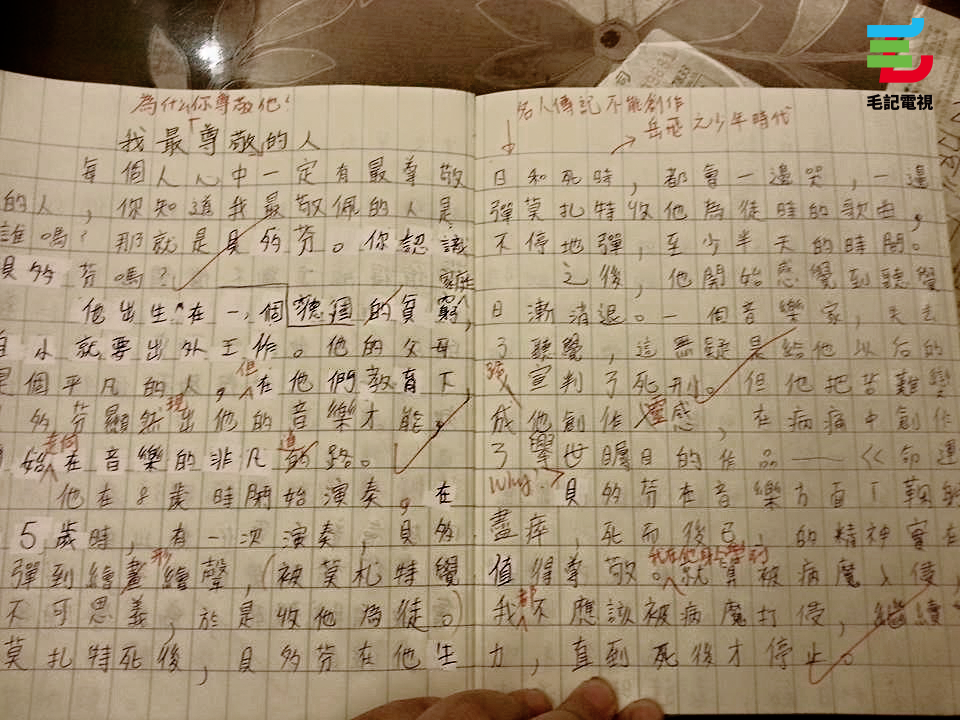 毛記電視
為什么你尊敬他?
我最「尊敬的人
每個人心中一定有最尊敬
的人,你知道我最敬佩的人是
誰嗎?那就是貝多芬。你認識
貝多芬嗎?
家庭
他出生在一個的貧窮,
自小就要出外工作。他的父母
是個平凡的人,但在他們教育下,
多芬顯然現出他的音樂才能,
始走向在音樂的非凡的道路。
他在8歲時開始演奏,在
5歲時,有一次演奏,貝多
彈到繪畫形繪聲,(被莫札特覺
不可思義,於是收他為徒。)
莫扎特死後,貝多芬在他生
名人傳記不能創作
岳飛之少年時代
日和死時,都會一邊哭,一邊
彈莫扎特收他為徒時的歌曲,
不停地彈,至少半天的時間。
之後,他開始感覺到聽覺
日漸消退。一個音樂家,失去
了聽覺,這無疑是給他以后的
宣判了死刑。但他把苦難變
成他創作靈感,在病痛中創作
了舉世矚目的作品——《命運
Why?
貝多芬在音樂方面「鞠躬
盡瘁,死而後已」的精神實在
值得尊敬。我在他身上學到就算被病魔入侵,
我都不應該被病魔打侵,繼續
力,直到死後才停止。